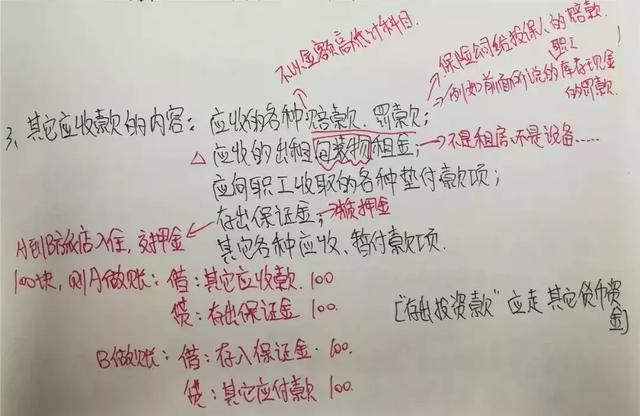 不以金额高低计科目.
保险公司给投保人的赔款.
职工
例如前面所说的库存现金
的罚款.
3、其它应收款的内容：应收的各种赔款、罚款；
△ 应收的出租包装物租金；→不是租房、不是设备……
应向职工收取的各种垫付款项；
存出保证金；→押金
其它各种应收、暂付款项.
A到B饭店入住，交押金
100块，则A做账：借：其它应收款 100
贷：存出保证金 100.
["存出投资款"应走其它货币资
金]
B做账：借：存入保证金. 100.
贷：其它应付款 100.